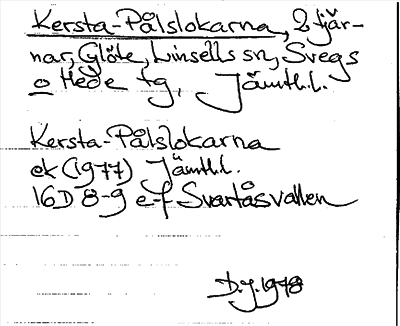 Kersta-Pålslokarna, 2 tjär-
nar, Glöte, Linsells sn, Svegs
o Hede tg, Jämtl.l.
Kersta-Pålslokarna
ek (1977) Jämtl.l.
16D 8-9 e-f Svartåsvallen
D.J. 1978